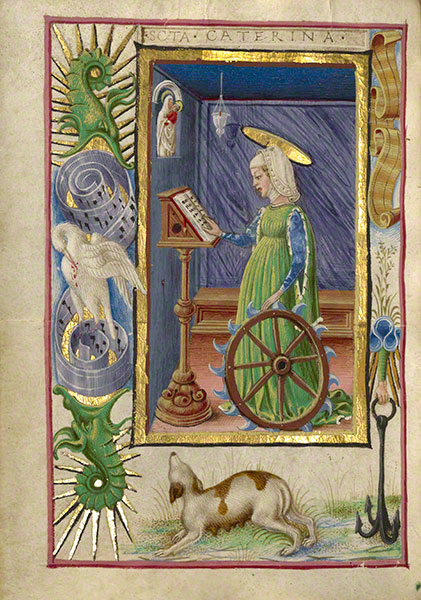 ·SCTA·CATERINA·